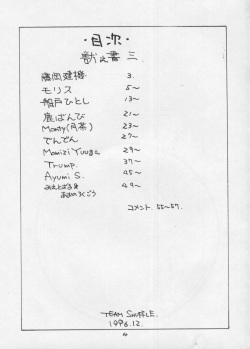 ・目次・
獣ノ書 三
藤岡建機 3.
モリス 5〜
船戸ひとし 13〜
鹿ばんび 21〜
Monty(月茶) 23〜
でんでん 27〜
Momizi Yuuga 29〜
Trump. 37〜
Ayumi S. 45〜
49〜
コメント. 55〜57.
TEAM SHUFFLE.
1996.12.